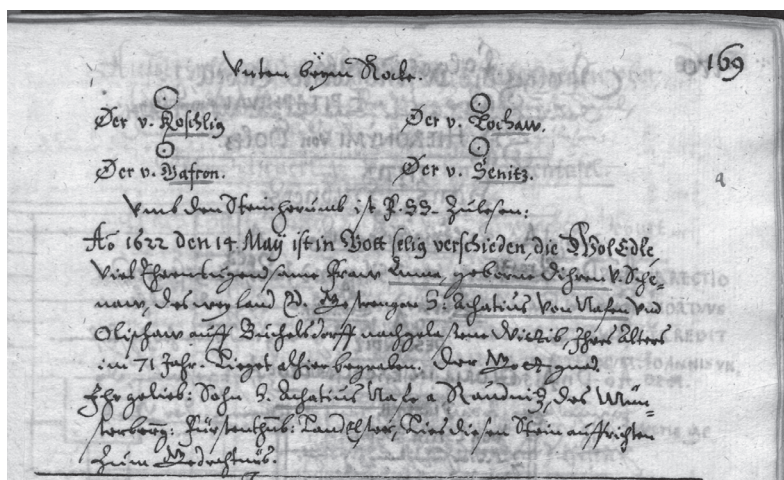 169
Vnten beÿm Rocke.
Der v. Koschlig Der v. Lochaw.
Der v. Vafron. Der v. Senitz.
Vmb den Stein herumb ist P. SS. Zulesen:
Ao 1622 den 14 Maÿ ist in Gott selig verschieden, die WolEdle,
Viel Ehrentugendsame Fraw Anna, geborne Dihren v. Schö-
naw, des weyland E. Gestrengen H. Achatius von Nafen vnd
Olischaw auff Büchelsdorff nachgelassene Wittib, Ihres Alters
im 71 Jahr. Lieget alhier begraben. Der Gott gnad.
Ihr gelieb: Sohn H. Achatius Nafe a Raudnitz, des Mün-
sterberg: Fürstenthub: Landelster, Lies diesen Stein auffrichten
Zum Gedechtnüs.